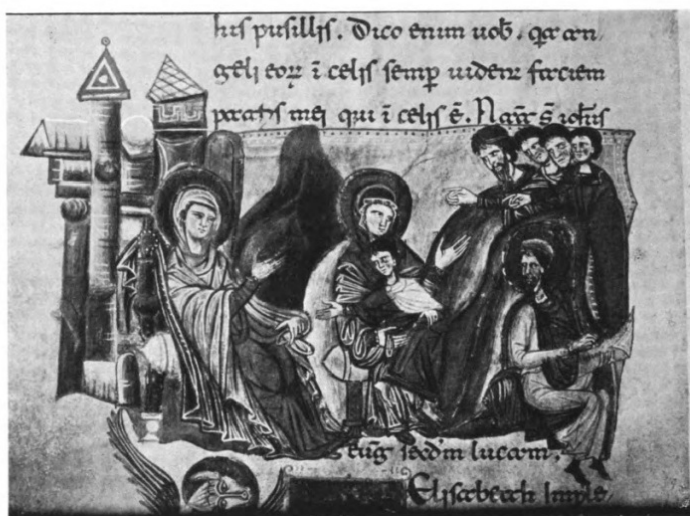 his pusillis. Dico enim uob̄. qa an
geli eoꝝ ī celis semp uident faciem
patris mei qui ī celis ē. Nat̄ s̄ ioh̄is
Euḡ secd̄m lucam.
Elisabeth imple